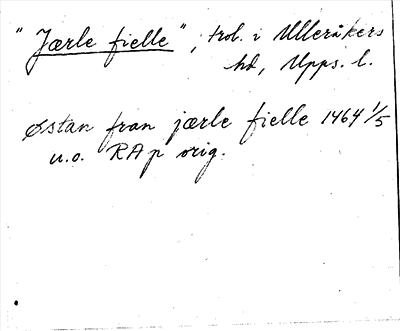 "Jærle fielle", trol. i Ulleråkers
hd, Upps. l.
Østan fran jærle fielle 1464 1/5
u.o. RAp orig.